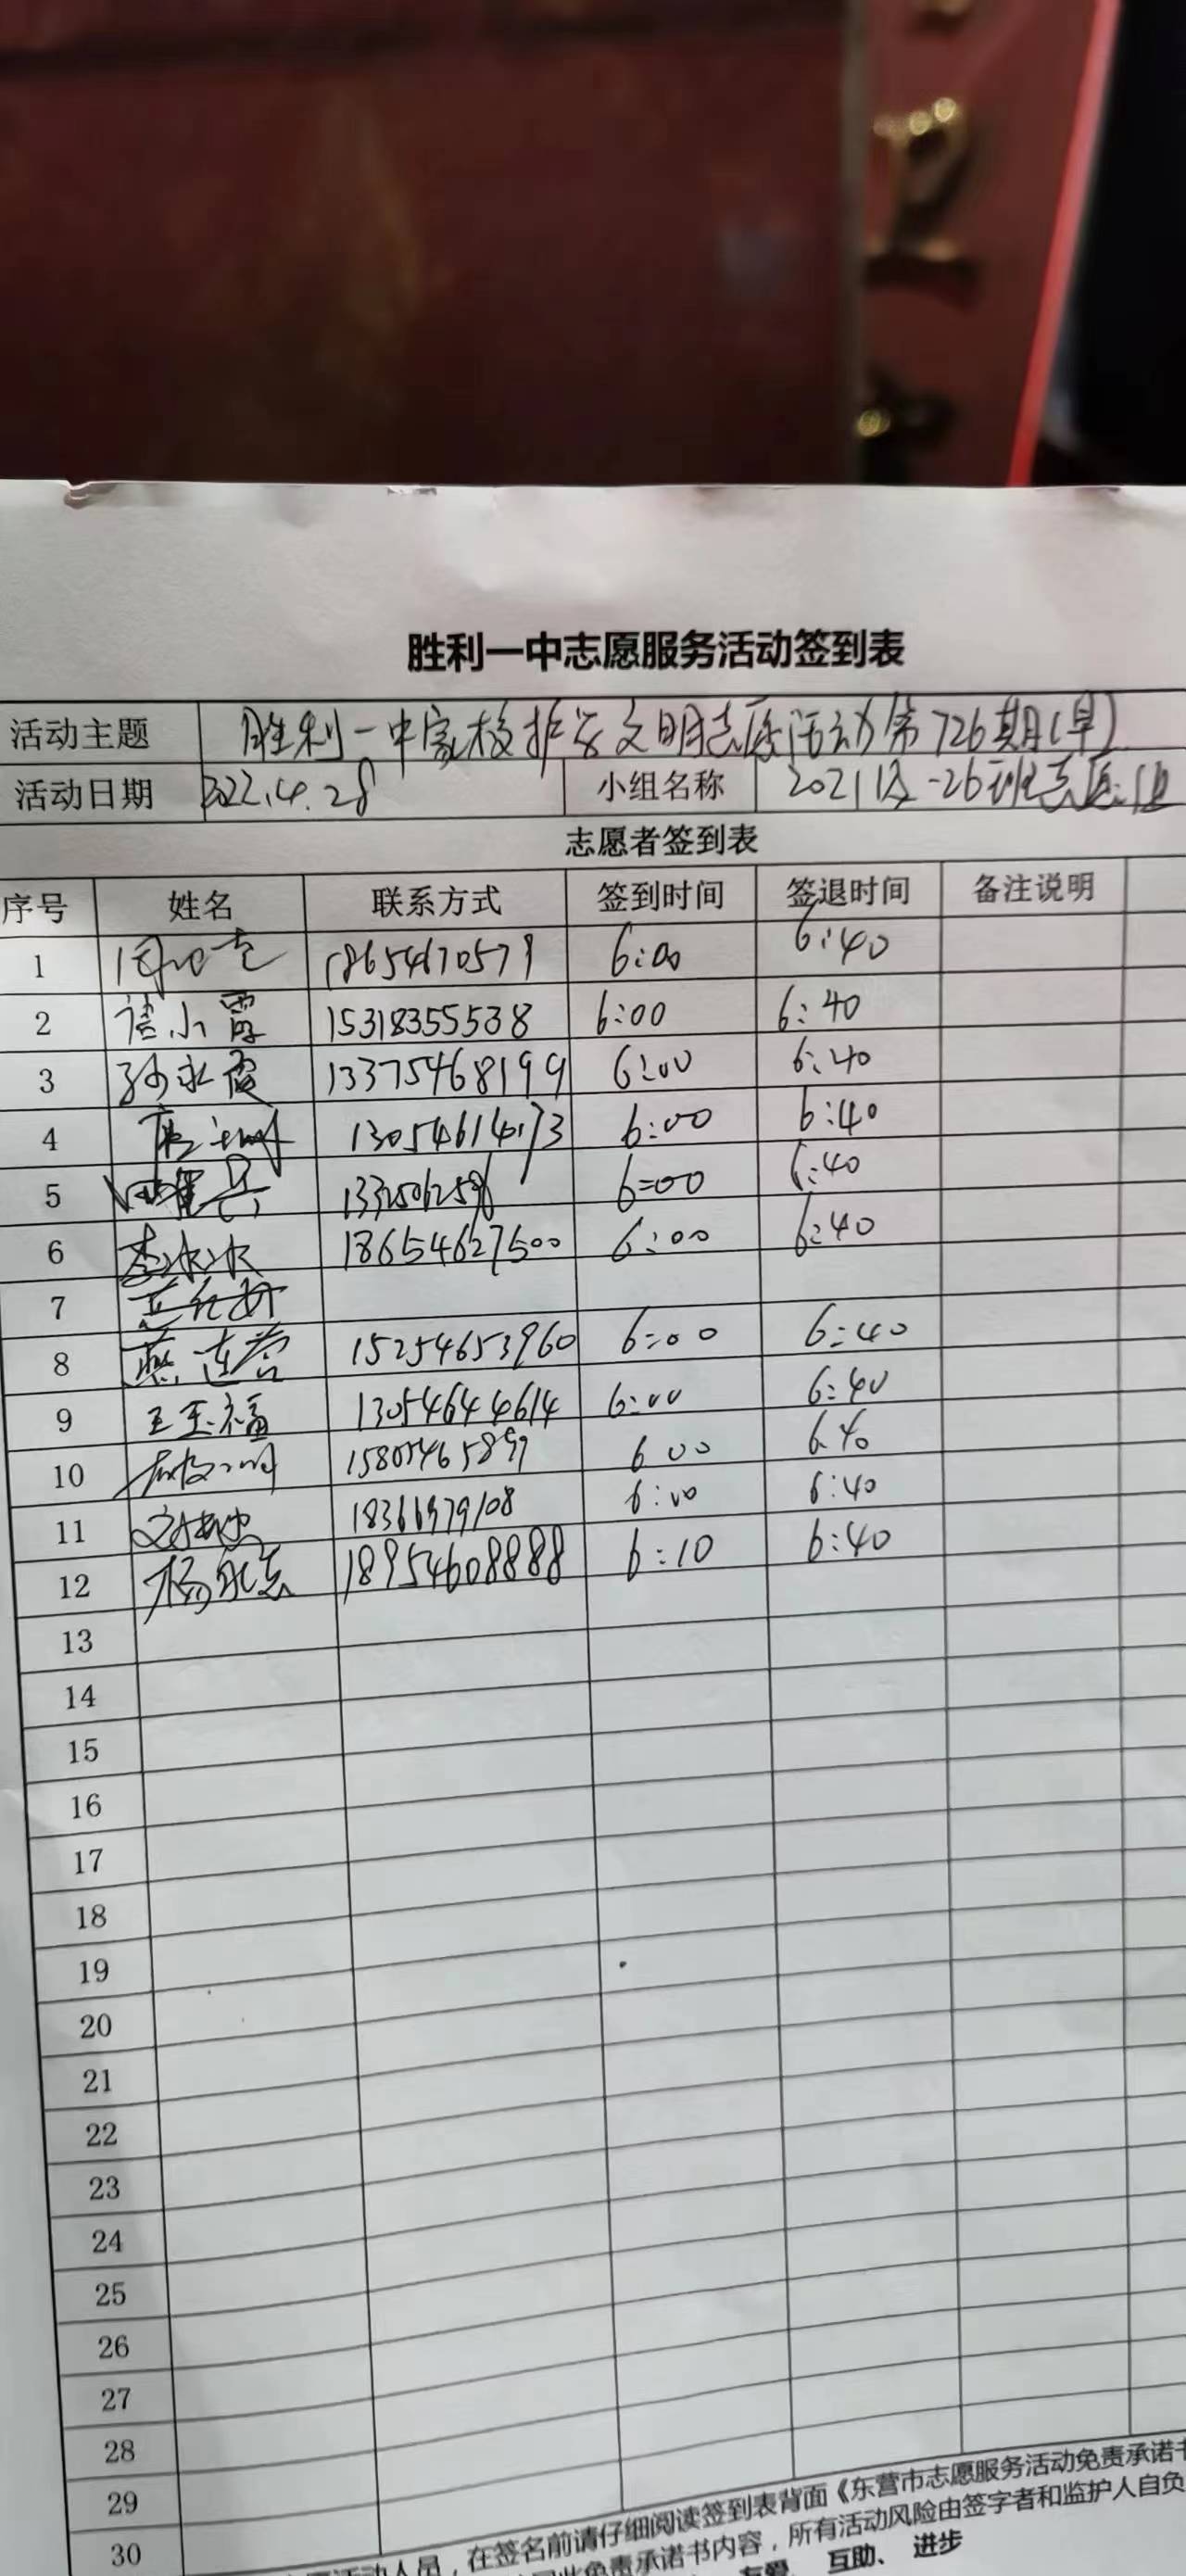 胜利一中志愿服务活动签到表
活动主题 胜利一中家校护学文明志愿活动第726期(早)
活动日期 2022.4.28 小组名称 2021级-26班志愿组
志愿者签到表
序号 姓名 联系方式 签到时间 签退时间 备注说明
1 18654670579 6:00 6:40
2 小霞 15318355538 6:00 6:40
3 孙永霞 13375468199 6:00 6:40
4 13054614173 6:00 6:40
5 6:00 6:40
6 李冰冰 18654627500 6:00 6:40
7
8 燕连营 15254653960 6:00 6:40
9 王玉福 13054644614 6:00 6:40
10 6 00 6 40
11 6:00 6:40
12 杨 18954608888 6:10 6:40
13
14
15
16
17
18
19
20
21
22
23
24
25
26
27
28
29
30
活动人员，在签名前请仔细阅读签到表背面《东营市志愿服务活动免责承诺书
免责承诺书内容，所有活动风险由签字者和监护人自负
友爱、互助、进步